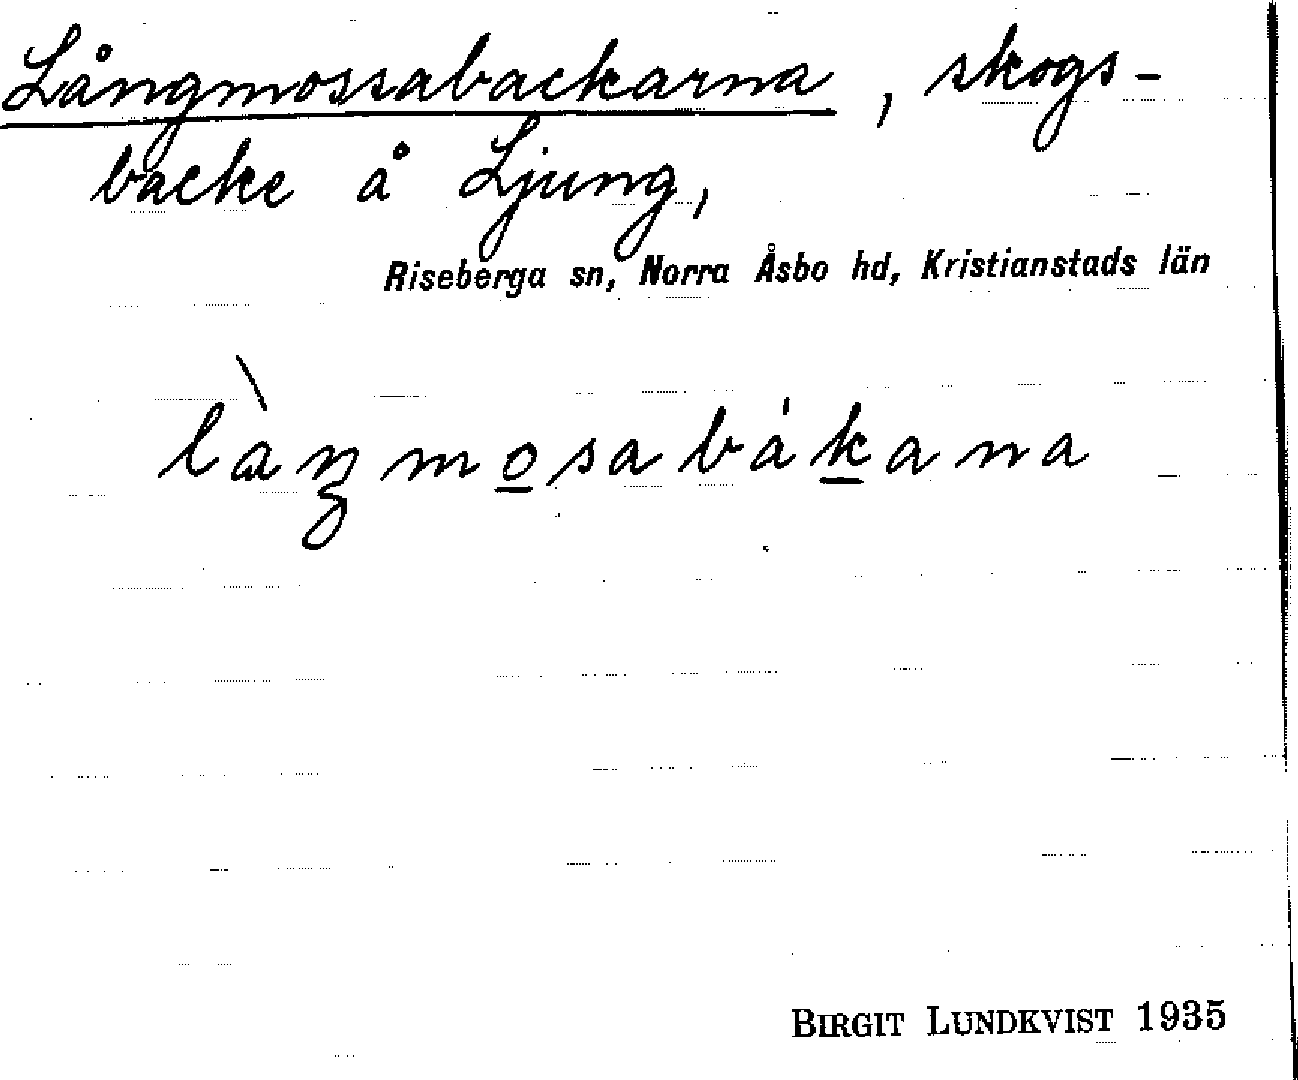 Långmossabackarna, skogs-
backe å Ljung,
Riseberga sn, Norra Åsbo hd, Kristianstads län
làŋmosabákana
BIRGIT LUNDKVIST 1935